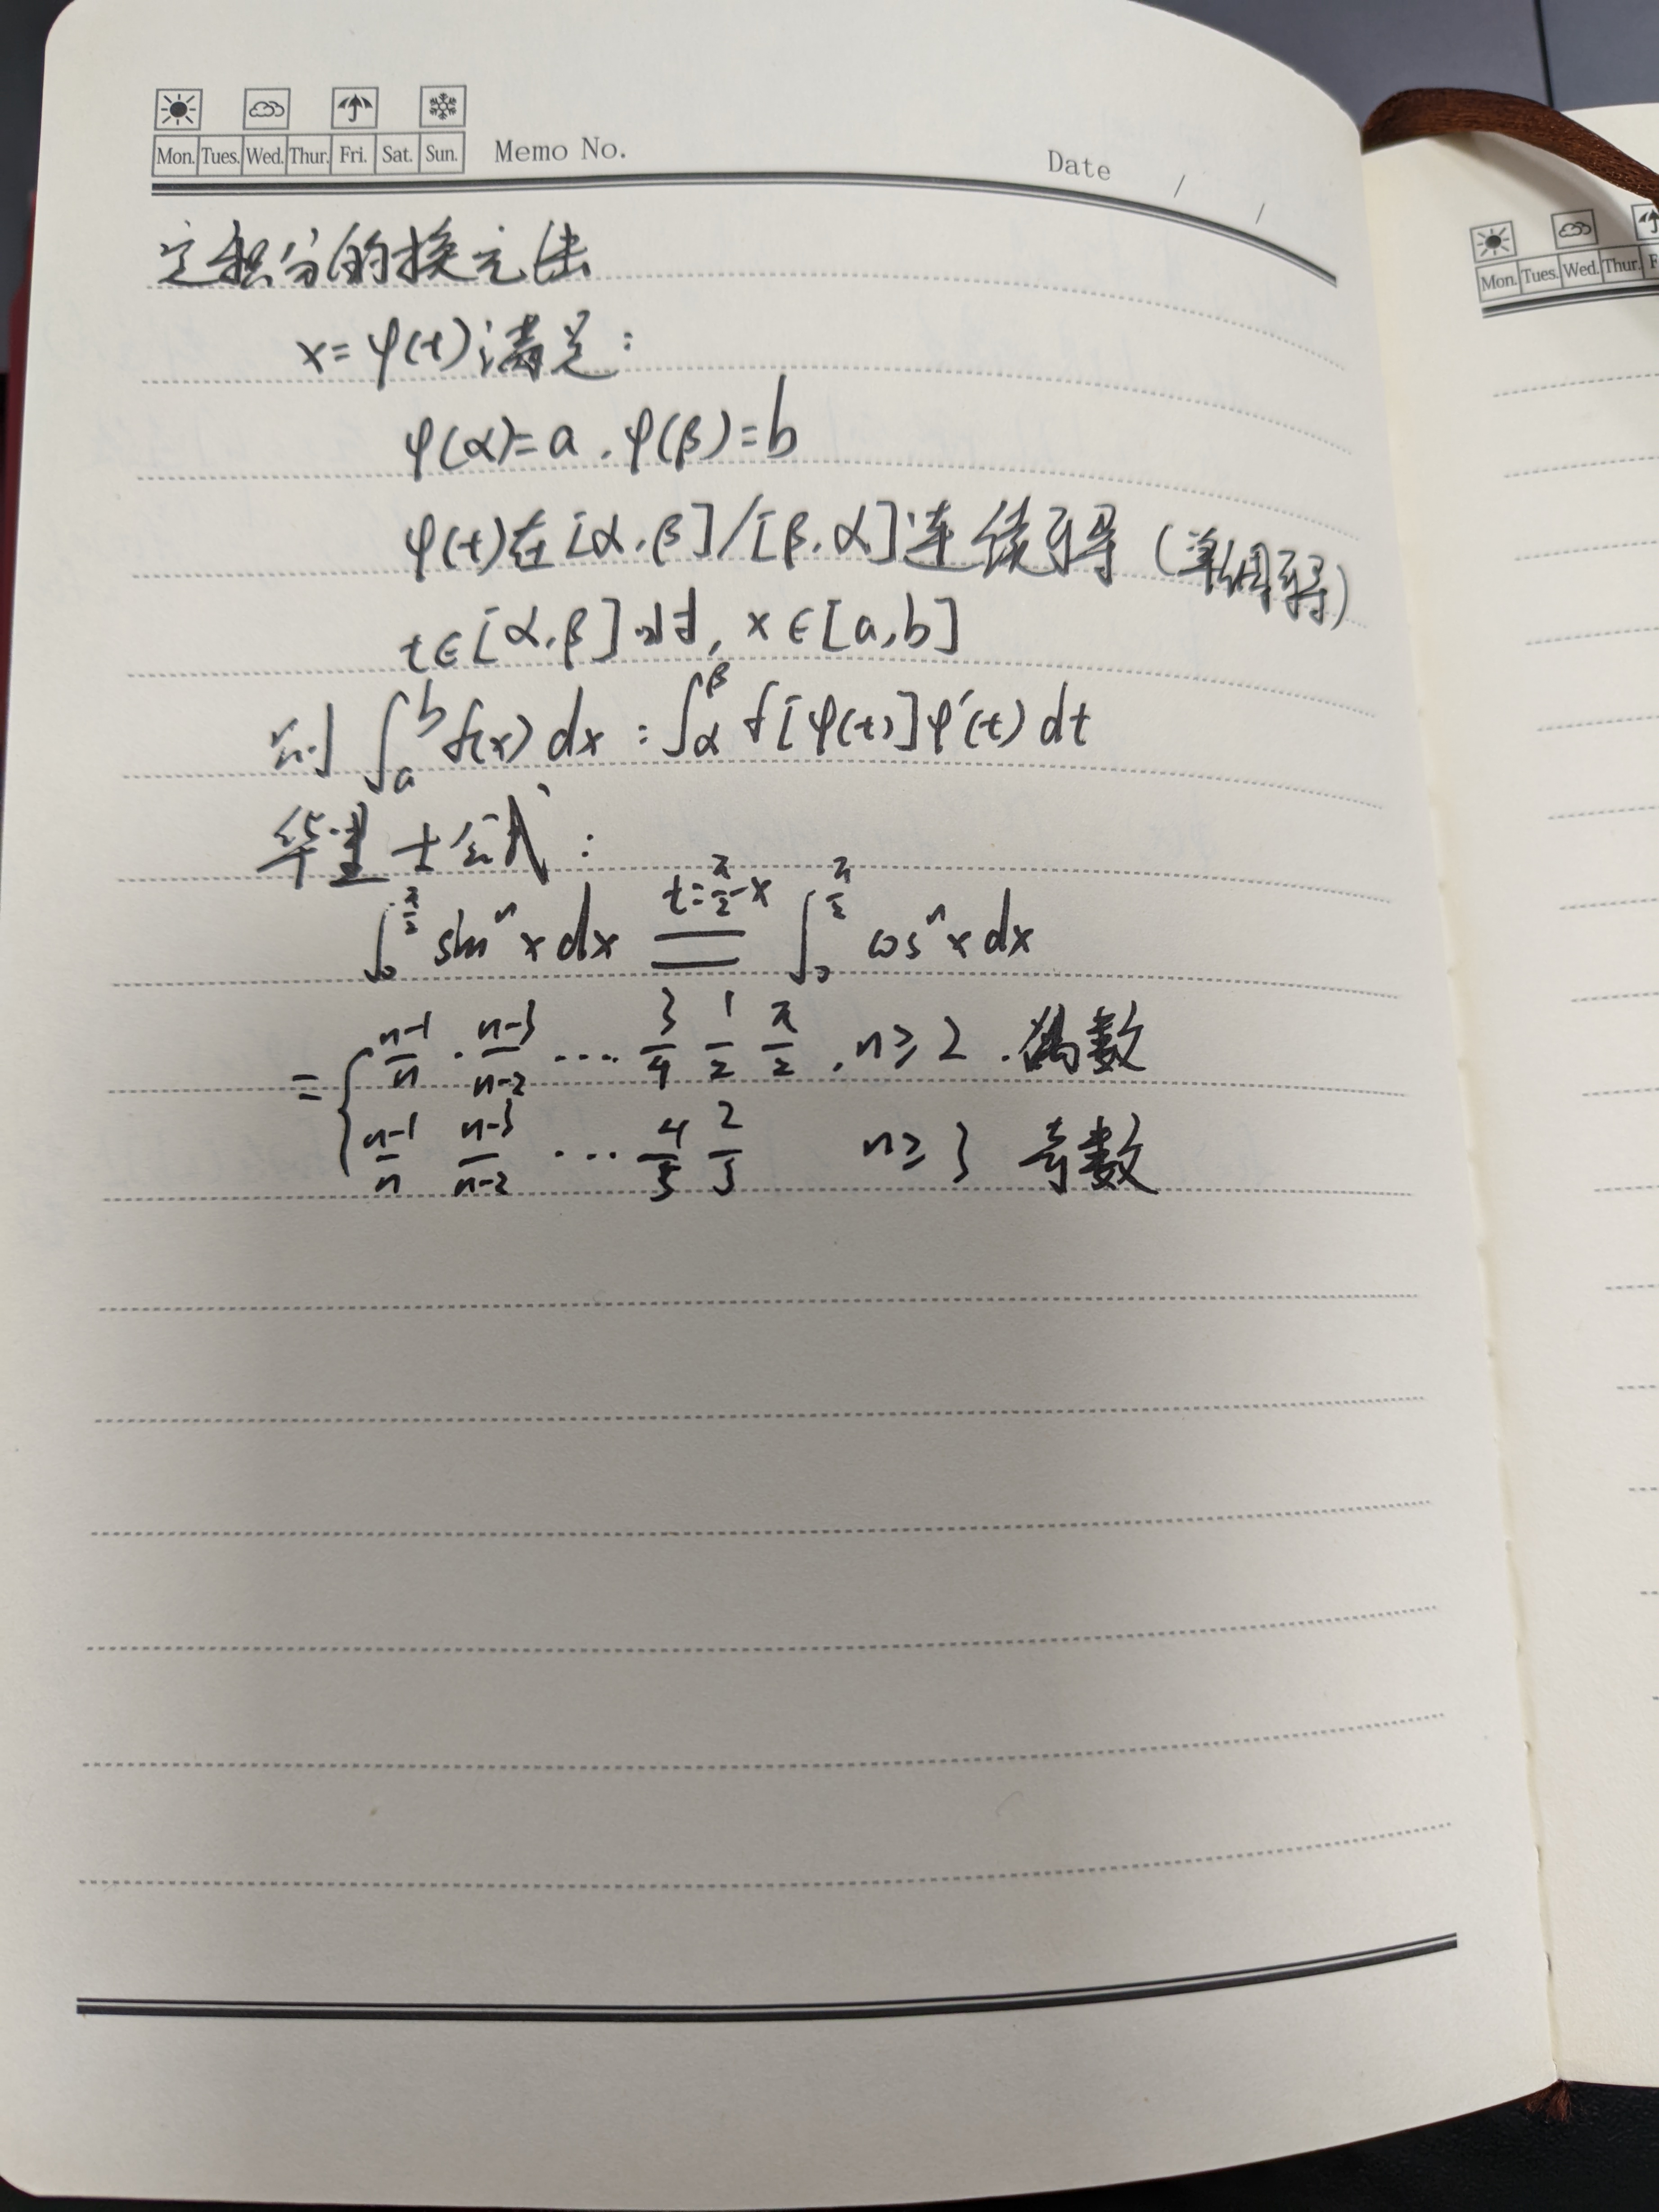 Mon. Tues. Wed. Thur. Fri. Sat. Sun. Memo No. Date / /
定积分的换元法
x=φ(t)满足:
φ(α)=a,φ(β)=b
φ(t)在[α,β]/[β,α]连续可导(单调可导)
t∈[α,β]时,x∈[a,b]
则 ∫_a^b f(x) dx = ∫_α^β f[φ(t)]φ'(t) dt
华里士公式:
∫_0^{π/2} sin^n x dx \overset{t=π/2-x}{=} ∫_0^{π/2} cos^n x dx
= { (n-1)/n · (n-3)/(n-2) ···· 3/4 1/2 π/2, n≥2.偶数
(n-1)/n (n-3)/(n-2) ··· 4/5 2/3 n≥3 奇数
Mon. Tues. Wed. Thur. F